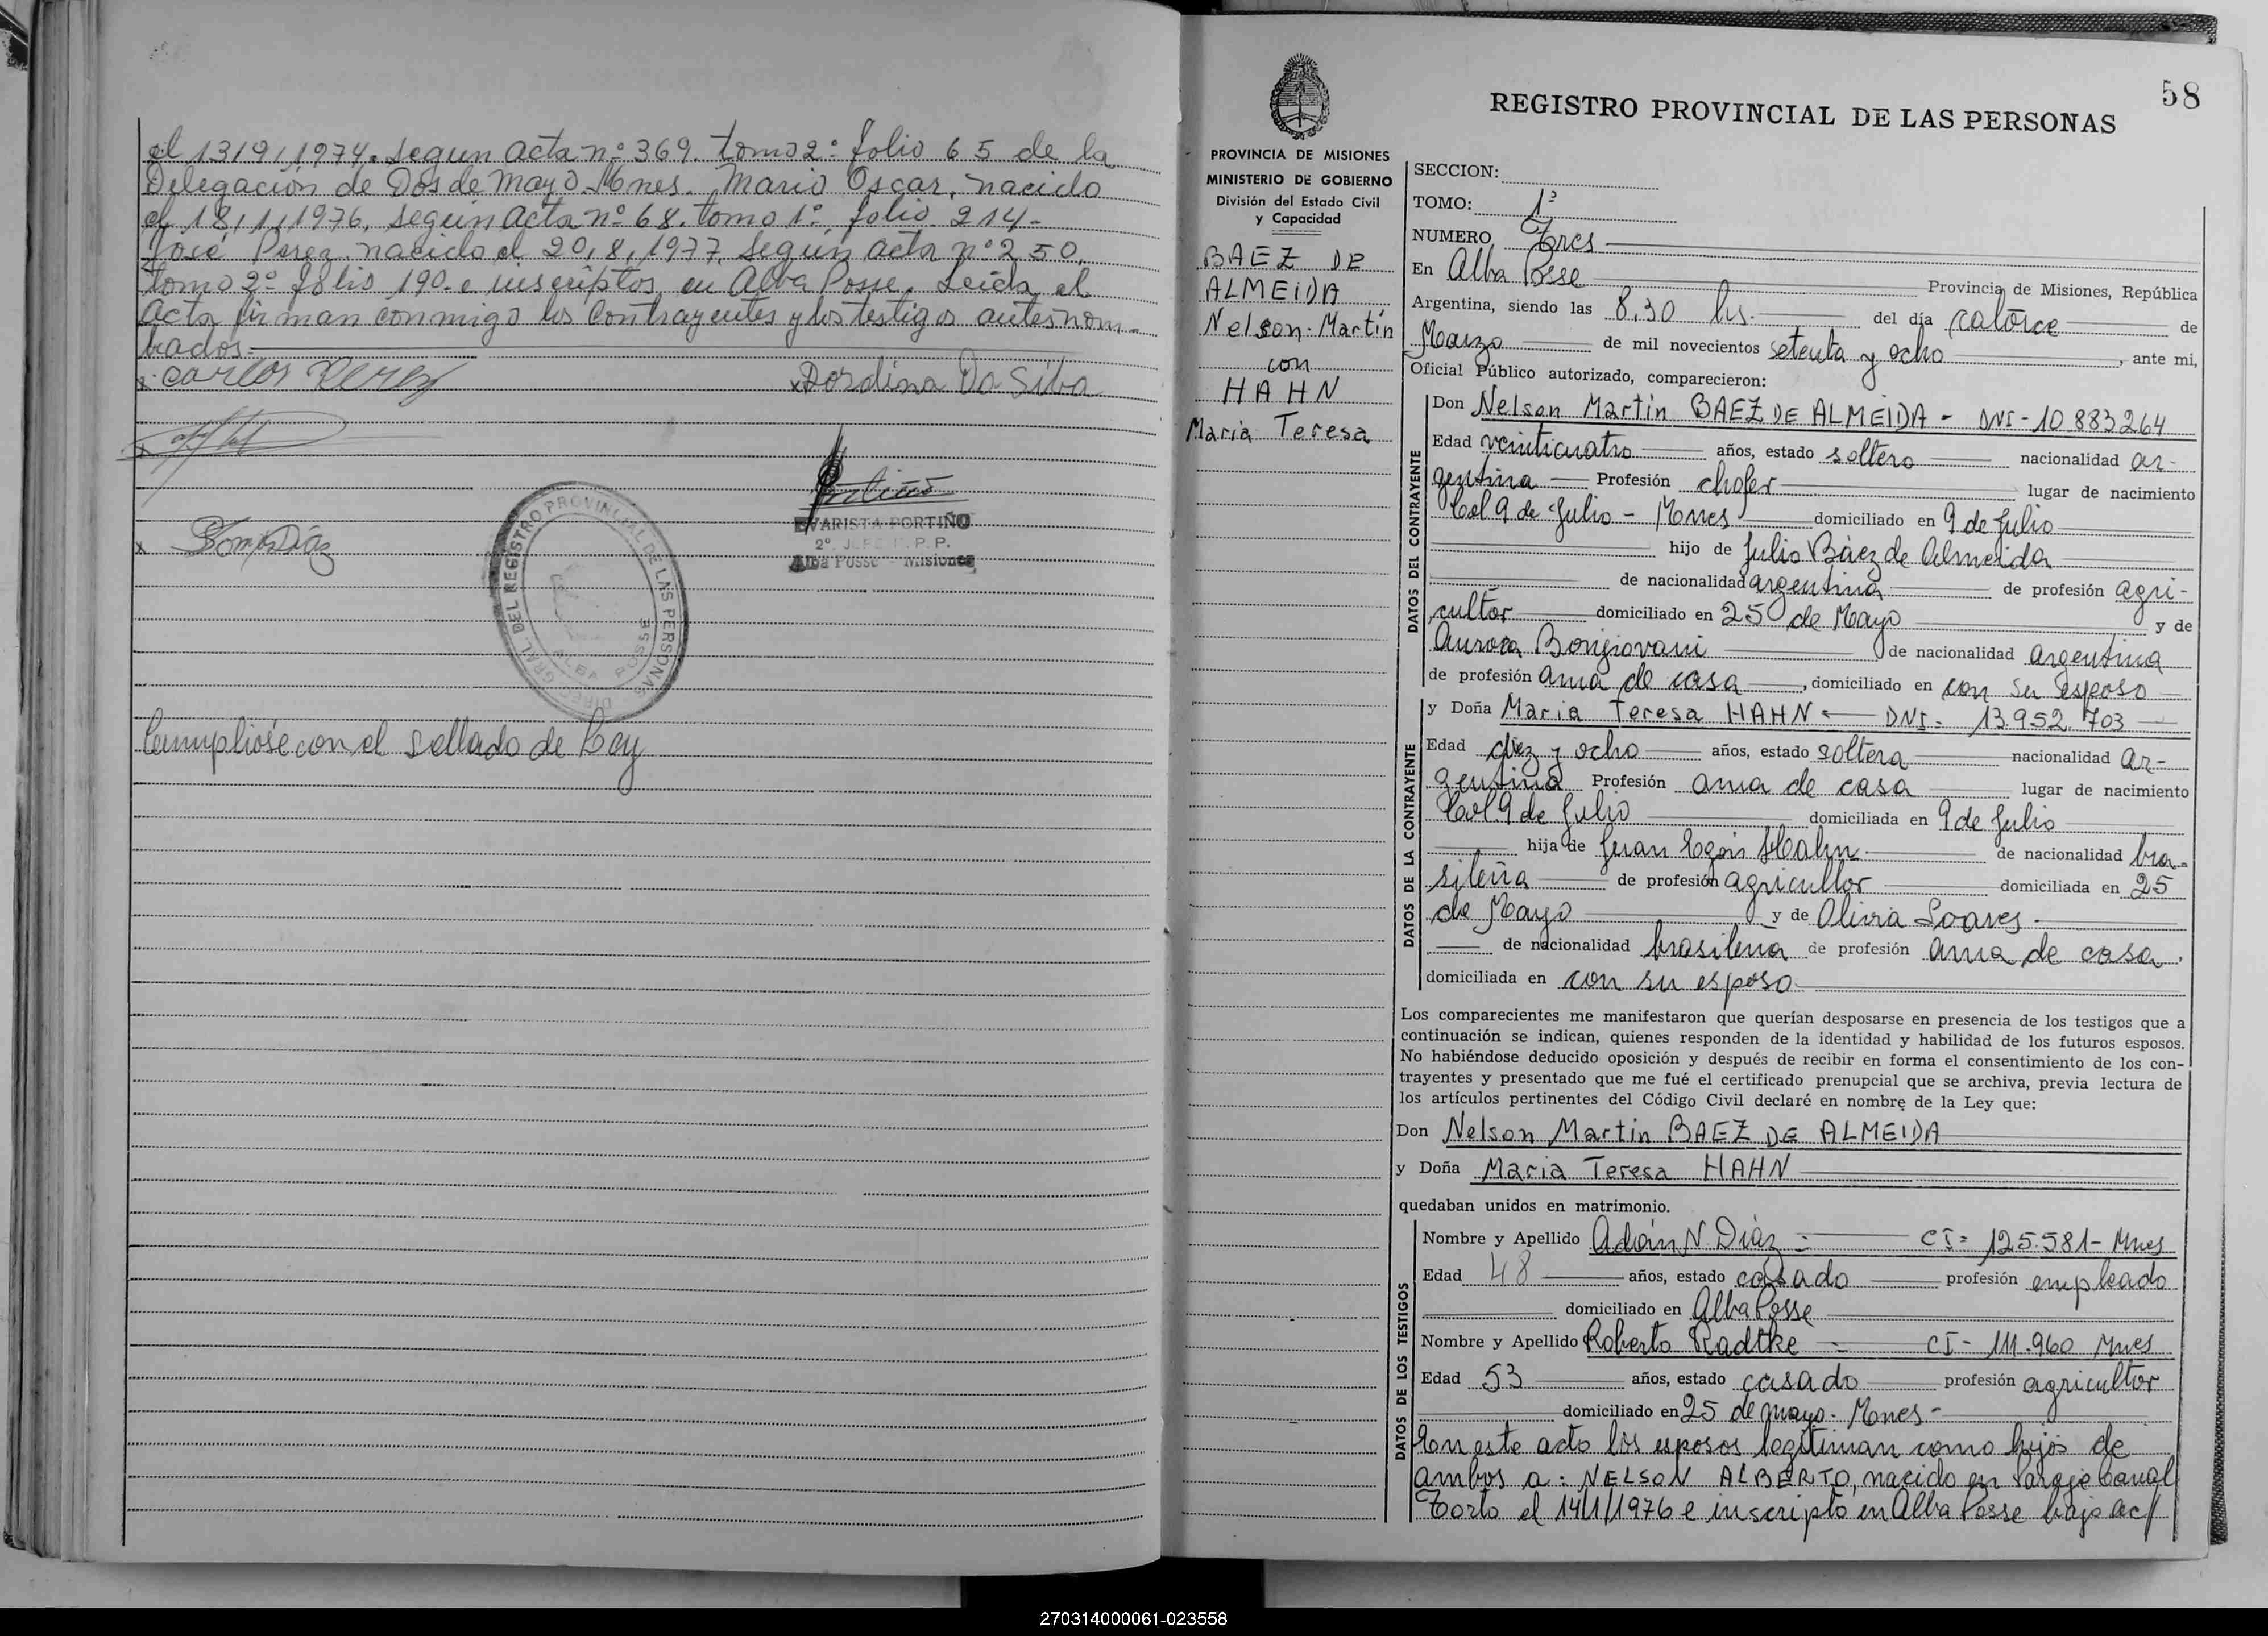 el 13/9/1974. segun acta nº 369. tomo 2º folio 65 de la
Delegación de Dos de Mayo-Mnes. Mario Oscar, nacido
el 18/1/1976, según acta nº 68. tomo 1º folio 214-
José Perez nacido el 20/8/1977 según acta nº 250,
tomo 2º folio 190. e inscriptos en Alba Posse. Leida el
acta firman conmigo los Contrayentes y los testigos antes nom-
brados.
x Carlos Perez x Dordina Da Silva
EVARISTA PORTIÑO
2º JEFE R. P. P.
Alba Posse - Misiones
DIREC. GRAL. DEL REGISTRO PROVINCIAL DE LAS PERSONAS
ALBA POSSE
Cumpliose con el sellado de Ley
58
REGISTRO PROVINCIAL DE LAS PERSONAS
PROVINCIA DE MISIONES
MINISTERIO DE GOBIERNO
División del Estado Civil
y Capacidad
BAEZ DE
ALMEIDA
Nelson Martin
con
HAHN
Maria Teresa
SECCION:
TOMO: 1º
NUMERO Tres
En Alba Posse Provincia de Misiones, República
Argentina, siendo las 8,30 hs. del día catorce de
Marzo de mil novecientos setenta y ocho, ante mi,
Oficial Público autorizado, comparecieron:
DATOS DEL CONTRAYENTE
Don Nelson Martin BAEZ DE ALMEIDA - DNI - 10.883.264
Edad veinticuatro años, estado soltero nacionalidad ar-
gentina Profesión chofer lugar de nacimiento
Col 9 de Julio - Mnes domiciliado en 9 de Julio
hijo de Julio Báez de Almeida
de nacionalidad argentina de profesión agri-
cultor domiciliado en 25 de Mayo y de
Aurora Bongiovani de nacionalidad argentina
de profesión ama de casa, domiciliado en con su esposo
DATOS DE LA CONTRAYENTE
y Doña Maria Teresa HAHN - DNI - 13.952.703
Edad diez y ocho años, estado soltera nacionalidad ar-
gentina Profesión ama de casa lugar de nacimiento
Col 9 de Julio domiciliada en 9 de Julio
hija de Juan Egon Hahn de nacionalidad bra-
sileña de profesión agricultor domiciliada en 25
de Mayo y de Olivia Soares
de nacionalidad brasileña de profesión ama de casa.
domiciliada en con su esposo
Los comparecientes me manifestaron que querían desposarse en presencia de los testigos que a
continuación se indican, quienes responden de la identidad y habilidad de los futuros esposos.
No habiéndose deducido oposición y después de recibir en forma el consentimiento de los con-
trayentes y presentado que me fué el certificado prenupcial que se archiva, previa lectura de
los artículos pertinentes del Código Civil declaré en nombre de la Ley que:
Don Nelson Martin BAEZ DE ALMEIDA
y Doña Maria Teresa HAHN
quedaban unidos en matrimonio.
DATOS DE LOS TESTIGOS
Nombre y Apellido Adán N. Díaz - CI = 125.581 - Mnes
Edad 48 años, estado casado profesión empleado
domiciliado en Alba Posse
Nombre y Apellido Roberto Radtke - CI - 111.960 Mnes
Edad 53 años, estado casado profesión agricultor
domiciliado en 25 de mayo. Mnes -
En este acto los esposos legitiman como hijos de
ambos a: NELSON ALBERTO, nacido en Paraje Canal
Torto el 14/1/1976 e inscripto en Alba Posse bajo ac/
270314000061-023558